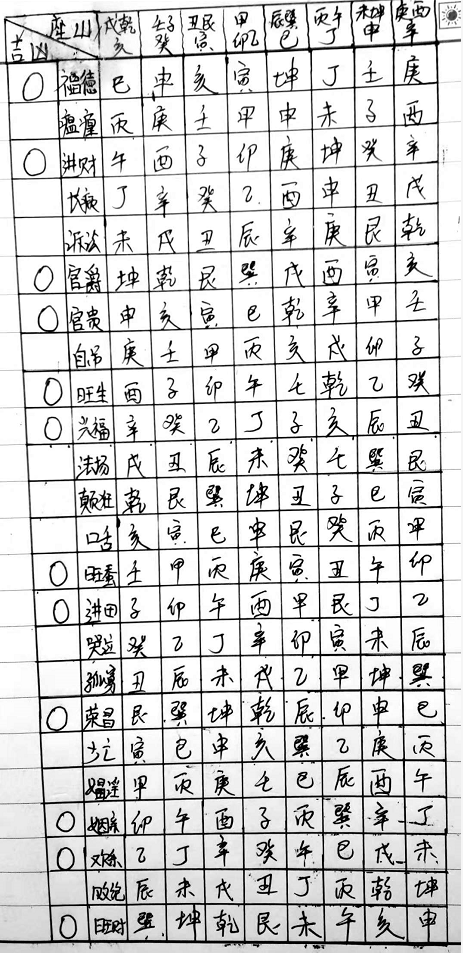 座山 吉凶 戌乾亥 壬子癸 丑艮寅 甲卯乙 辰巽巳 丙午丁 未坤申 庚酉辛
○ 福德 巳 申 亥 寅 坤 丁 壬 庚
瘟疽 丙 庚 壬 甲 申 未 子 酉
○ 进财 午 酉 子 卯 庚 坤 癸 辛
长病 丁 辛 癸 乙 酉 申 丑 戌
诉讼 未 戌 丑 辰 辛 庚 艮 乾
○ 官爵 坤 乾 艮 巽 戌 酉 寅 亥
○ 官贵 申 亥 寅 巳 乾 辛 甲 壬
自吊 庚 壬 甲 丙 亥 戌 卯 子
○ 旺生 酉 子 卯 午 壬 乾 乙 癸
○ 兴福 辛 癸 乙 丁 子 亥 辰 丑
法场 戌 丑 辰 未 癸 壬 巽 艮
颠狂 乾 艮 巽 坤 丑 子 巳 寅
口舌 亥 寅 巳 申 艮 癸 丙 甲
○ 旺蚕 壬 甲 丙 庚 寅 丑 午 卯
○ 进田 子 卯 午 酉 甲 艮 丁 乙
哭泣 癸 乙 丁 辛 卯 寅 未 辰
孤寡 丑 辰 未 戌 乙 甲 坤 巽
○ 荣昌 艮 巽 坤 乾 辰 卯 申 巳
少亡 寅 巳 申 亥 巽 乙 庚 丙
娼淫 甲 丙 庚 壬 巳 辰 酉 午
○ 姻亲 卯 午 酉 子 丙 巽 辛 丁
○ 欢乐 乙 丁 辛 癸 午 巳 戌 未
败绝 辰 未 戌 丑 丁 丙 乾 坤
○ 旺财 巽 坤 乾 艮 未 午 亥 申